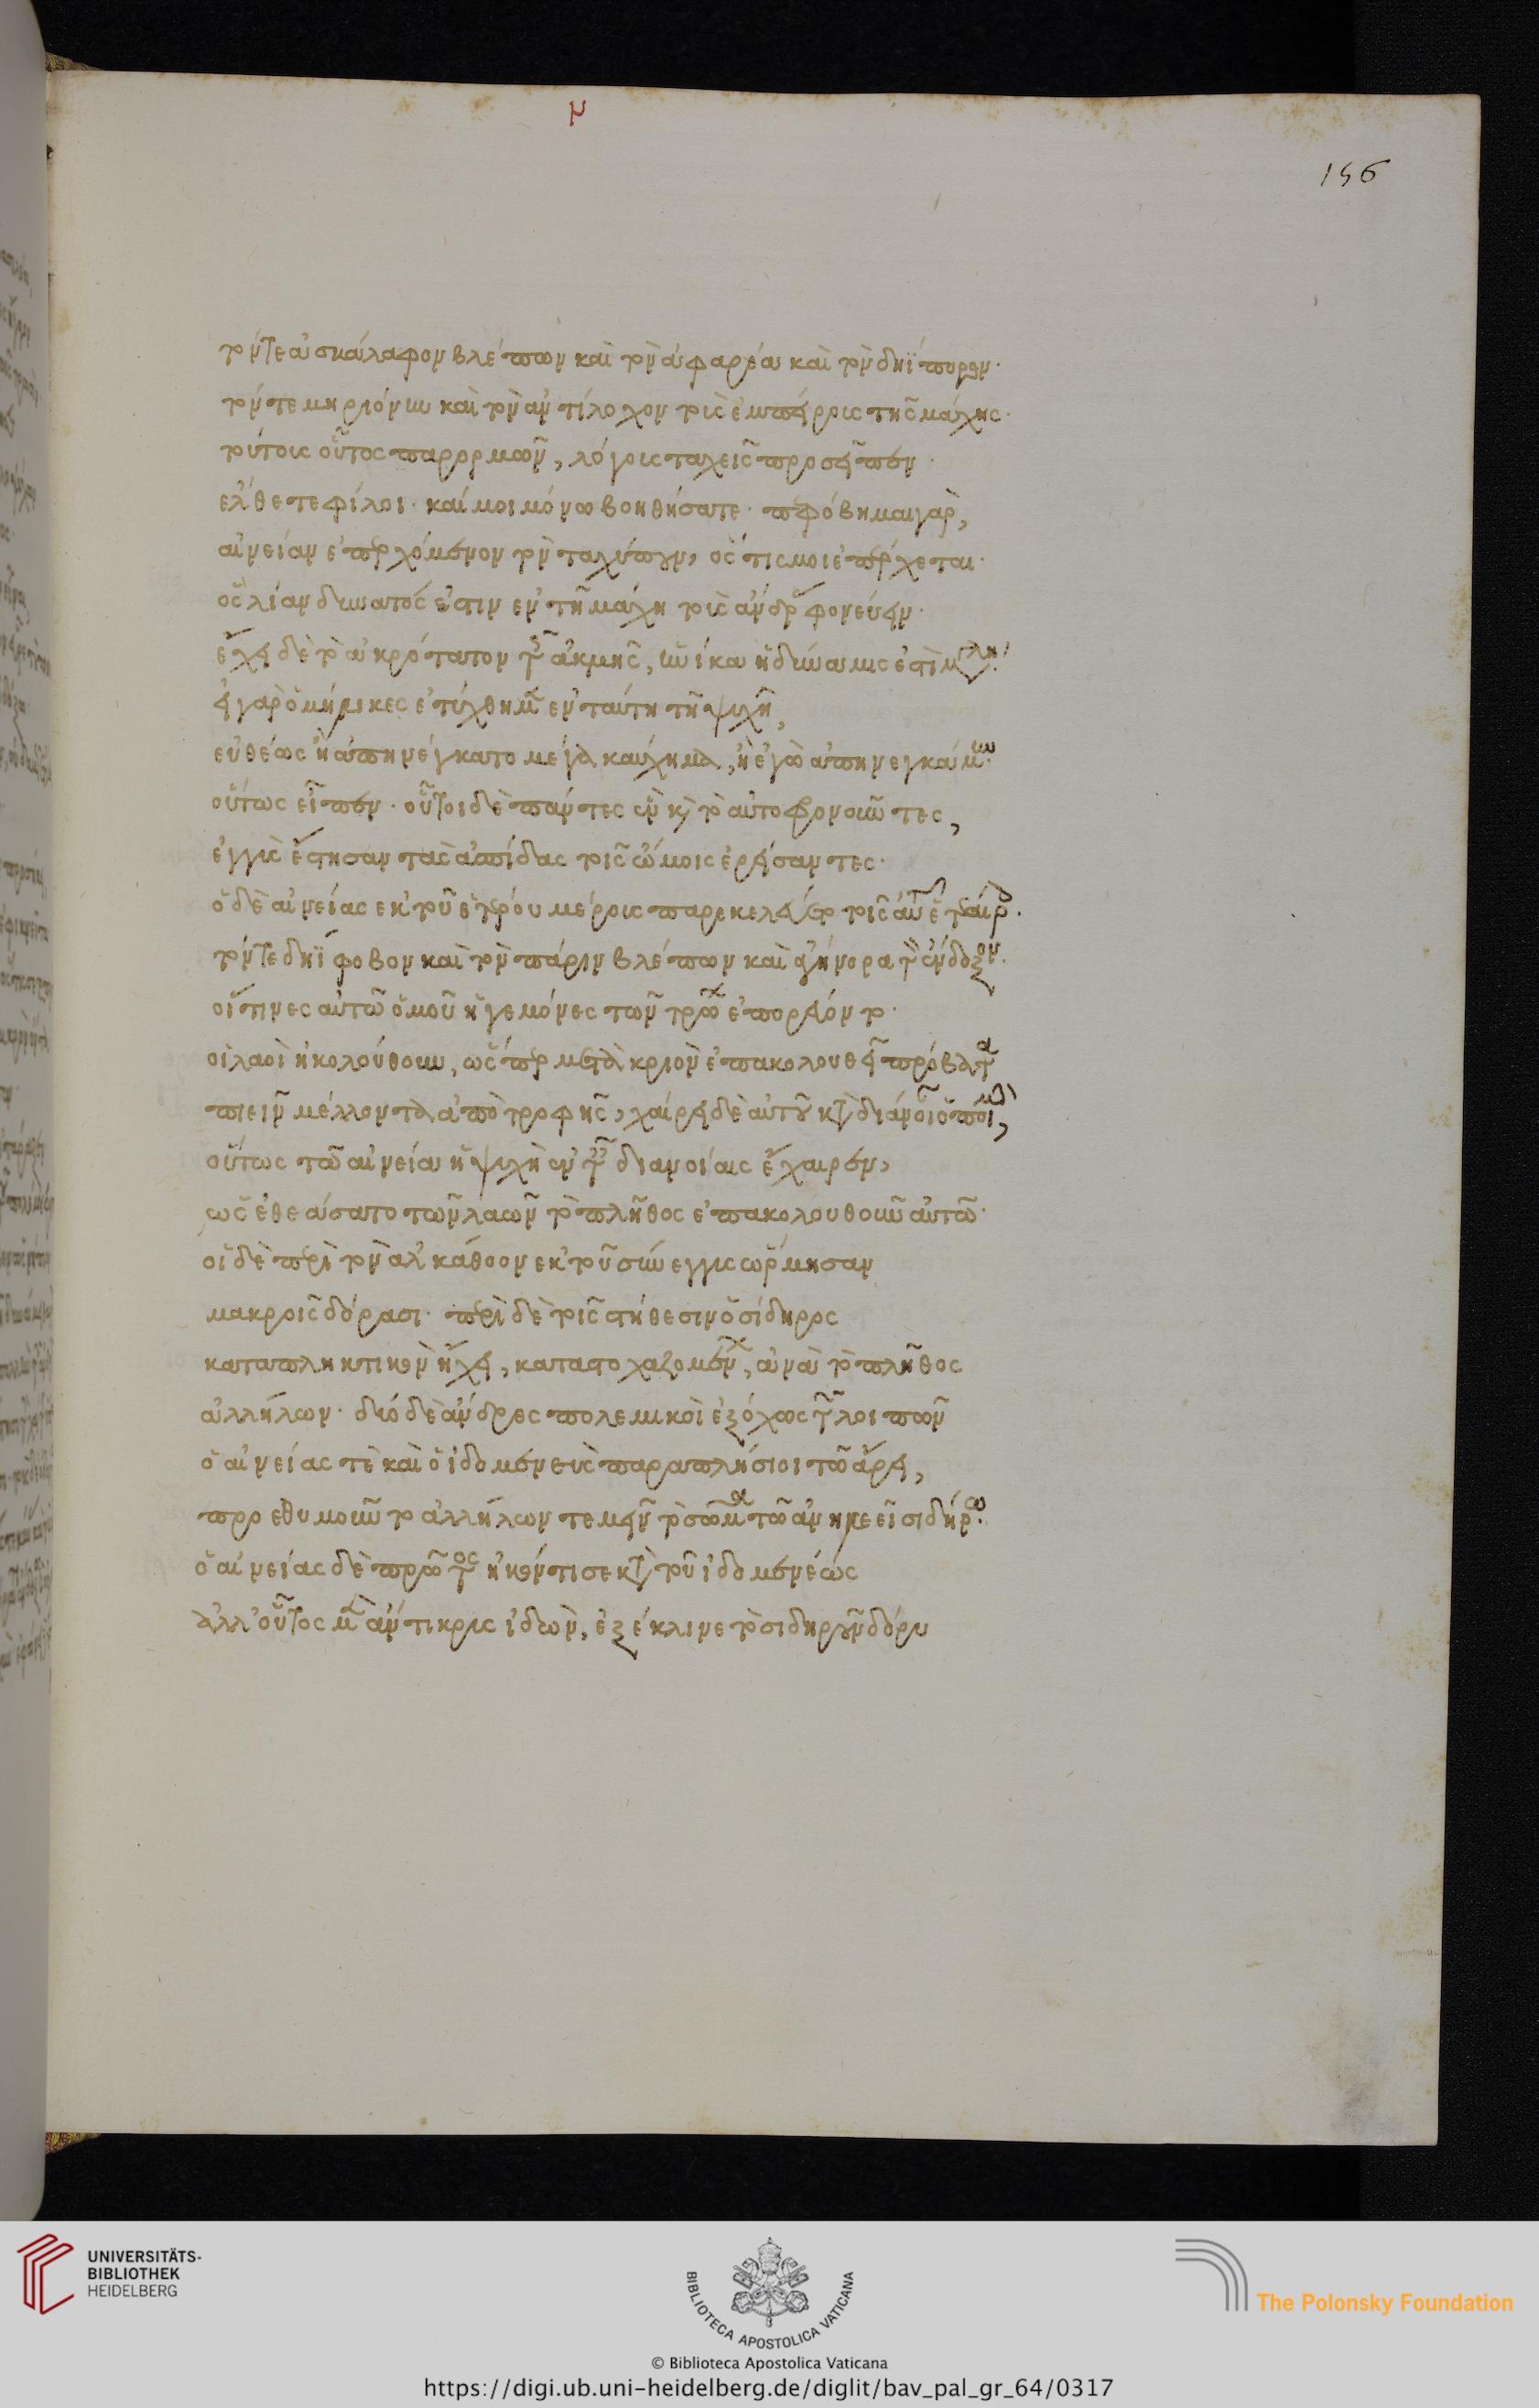 ν
156
τόν τε ἀσκάλαφον βλέπων καὶ τὸν ἀφαρέα καὶ τὸν δηΐπυρον·
τόν τε μηριόνην καὶ τὸν ἀντίλοχον τοὺς ἐμπείρους τῆς μάχης·
τούτους οὗτος παρορμῶν, λόγοις ταχεῖς προσεῖπεν·
ἔλθετε φίλοι· καί μοι μόνω βοηθήσατε· πεφόβημαι γὰρ,
αἰνείαν ἐπερχόμενον τὸν ταχύπουν, ὅστις μοι ἐπέρχεται·
ὃς λίαν δυνατός ἐστιν ἐν τῆ μάχη τοὺς ἄνδρας φονεύειν·
ἔχει δὲ τὸ ἀκρότατον τῆς ἀκμῆς, ἡ δύναμις ἐστὶ μεγάλη·
εἰ γὰρ ὁμήλικες ἐτύχθημεν ἐν ταύτη τῆ ψυχῆ,
εὐθέως ἢ ἀπηνέγκατο μέγα καύχημα, ἢ ἐγὼ ἀπηνεγκάμην·
οὕτως εἶπεν· οὗτοι δὲ πάντες ἓν κατὰ τὸ αὐτὸ φρονοῦντες,
ἐγγὺς ἔστησαν τὰς ἀσπίδας τοῖς ὤμοις ἐρείσαντες·
ὁ δὲ αἰνείας ἐκ τοῦ ἑτέρου μέρους παρεκελεύετο τοῖς αὐτοῦ ἑταίροις·
τόν τε δηΐφοβον καὶ τὸν πάριν βλέπων καὶ ἀγήνορα τὸν ἔνδοξον·
οἵτινες αὐτῶ ὁμοῦ ἡγεμόνες τῶν τρώων ἐπορεύοντο·
οἱ λαοὶ ἠκολούθουν, ὥσπερ μετὰ κριὸν ἐπακολουθεῖ πρόβατα
πιεῖν μέλλοντα ἀπὸ τροφῆς, χαίρει δὲ αὐτοῦ κατὰ διάνοιαν ὁ ποιμὴν,
οὕτως τῶ αἰνεία ἡ ψυχὴ ἐν ταῖς διανοίαις ἔχαιρεν,
ὡς ἐθεάσατο τῶν λαῶν τὸ πλῆθος ἐπακολουθοῦν αὐτῶ·
οἱ δὲ περὶ τὸν ἀλκάθοον ἐκ τοῦ σύνεγγυς ὥρμησαν
μακροῖς δόρασι· περὶ δὲ τοῖς στήθεσιν ὁ σίδηρος
καταπληκτικὸν ἤχει, καταστοχαζομένων, ἀνὰ τὸ πλῆθος
ἀλλήλων· δύο δὲ ἄνδρες πολεμικοὶ ἐξόχως τῶν λοιπῶν
ὁ αἰνείας τὲ καὶ ὁ ἰδομενεὺς παραπλήσιοι τῶ ἄρει,
προεθυμοῦντο ἀλλήλων τεμεῖν τὸ σῶμα τῶ ἀνηλεεῖ σιδήρω·
ὁ αἰνείας δὲ πρῶτος ἠκόντισε κατὰ τοῦ ἰδομενέως
ἀλλ' οὗτος μὲν ἄντικρυς ἰδὼν, ἐξέκλινε τὸ σιδηροῦν δόρυ
UNIVERSITÄTS-
BIBLIOTHEK
HEIDELBERG
BIBLIOTECA APOSTOLICA VATICANA
The Polonsky Foundation
© Biblioteca Apostolica Vaticana
https://digi.ub.uni-heidelberg.de/diglit/bav_pal_gr_64/0317